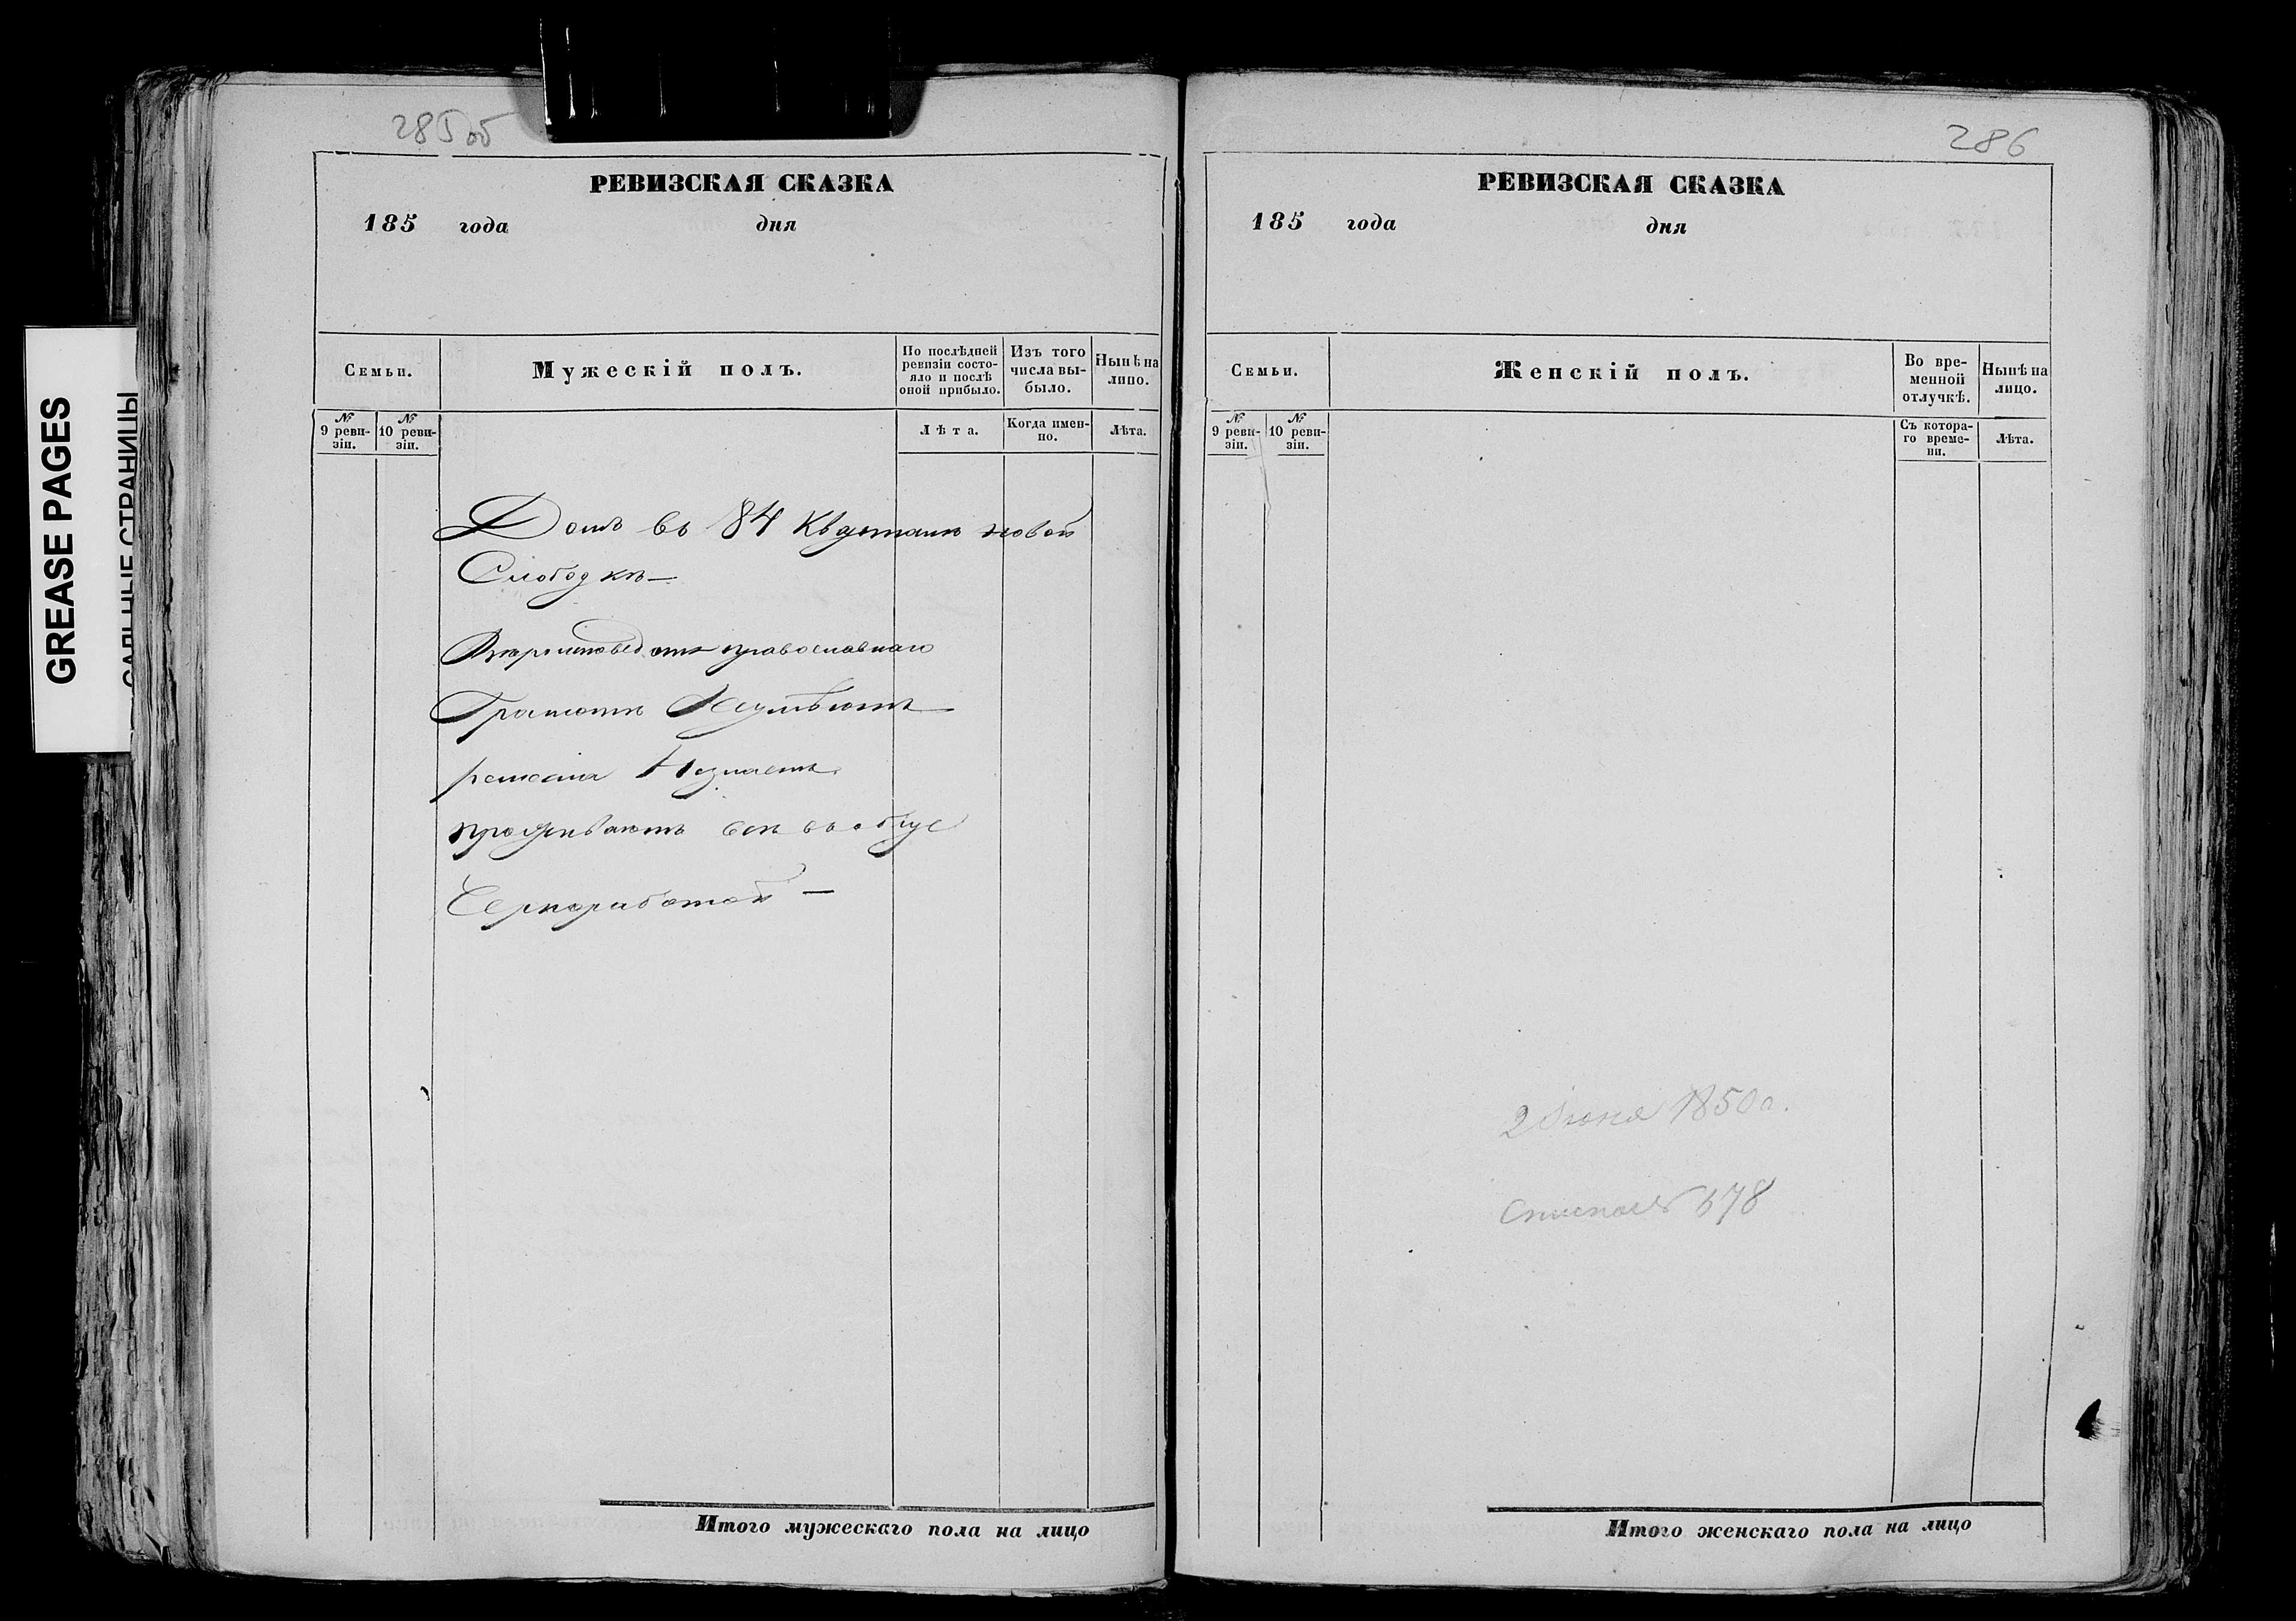 GREASE PAGES
САЛЬНЫЕ СТРАНИЦЫ
285об
РЕВИЗСКАЯ СКАЗКА
185 года дня
Семьи.
Мужескій полъ.
По послѣдней ревизіи состояло и послѣ оной прибыло.
Изъ того числа выбыло.
Нынѣ на лицо.
№ 9 ревизіи.
№ 10 ревизіи.
Лѣта.
Когда именно.
Лѣта.
Домъ въ 84 Кварталѣ новой
Слободкѣ —
православнаго
Грамотѣ Неумѣютъ
ремесла Незнаетъ
проживаютъ всѣ въ
Черноработой —
Итого мужескаго пола на лицо
286
РЕВИЗСКАЯ СКАЗКА
185 года дня
Семьи.
Женскій полъ.
Во временной отлучкѣ.
Нынѣ на лицо.
№ 9 ревизіи.
№ 10 ревизіи.
Съ котораго времени.
Лѣта.
2 Июня 1850 г.
678
Итого женскаго пола на лицо